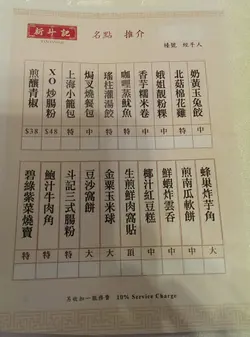 新斗記
名點 推介
奶黃玉兔餃 中
北菇棉花雞 特
娥姐靚粉粿 中
香芋糯米卷 中
咖喱蒸魷魚 特
瑤柱灌湯餃 特
焗叉燒餐包 中
上海小籠包 特
XO炒腸粉 $48
煎釀青椒 $38
蜂巢炸芋角 大
煎南瓜軟餅 中
鮮蝦炸雲吞 中
椰汁紅豆糕 中
生煎鮮肉窩貼 頂
金粟玉米球 大
豆沙窩餅 大
斗記三式腸粉 特
鮑汁牛肉角 特
碧綠紫菜燒賣 特
另收加一服務費 10% Service Charge